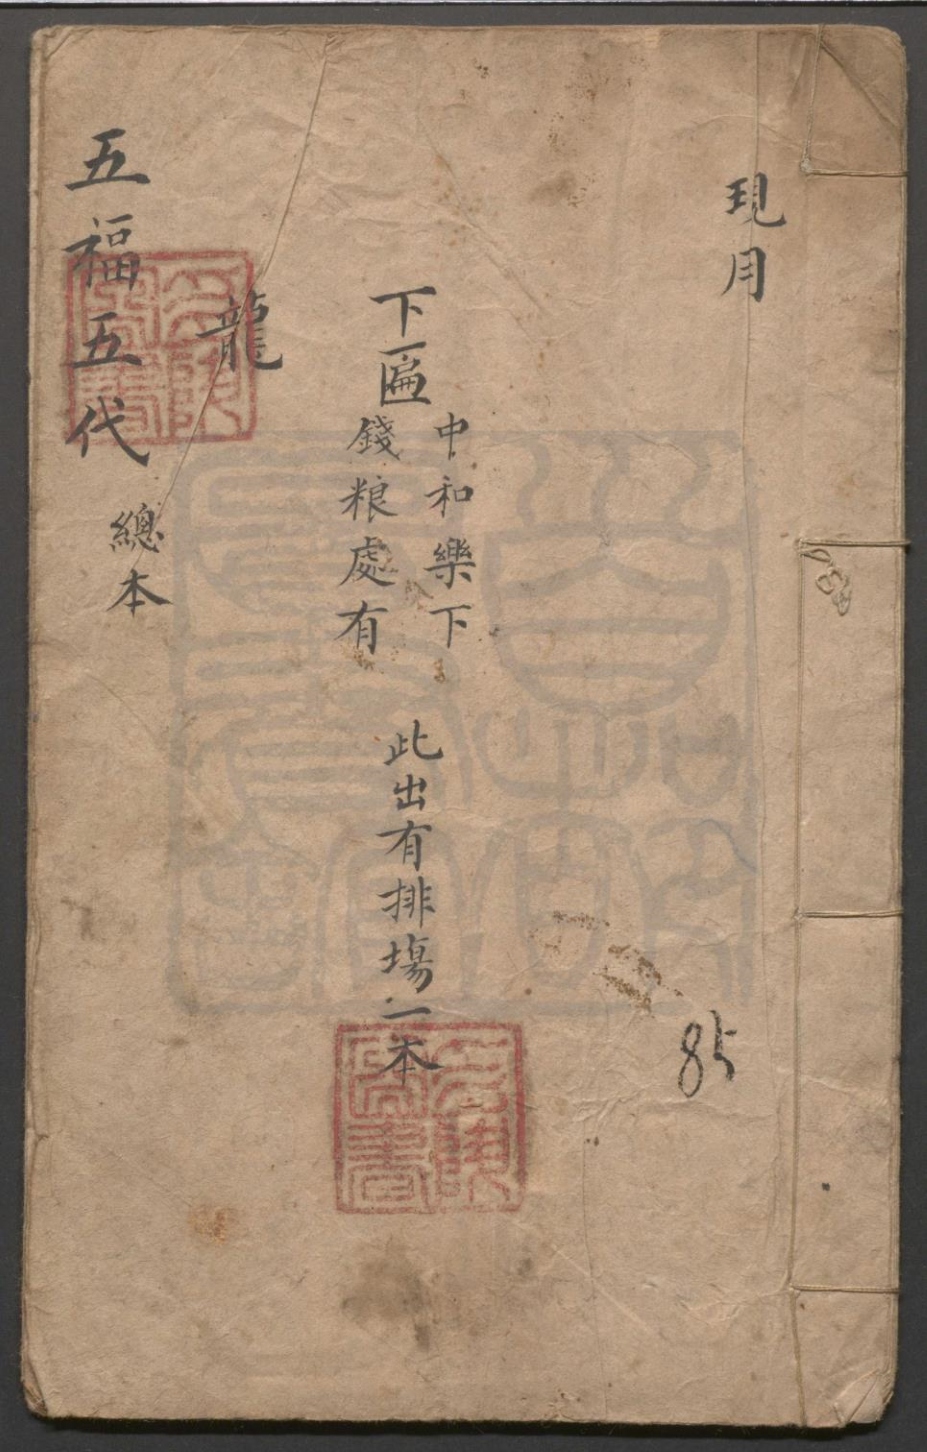 現月
下匾
中和樂下
錢粮處有
此出有排塲一本
龍
五福五代
總本
85